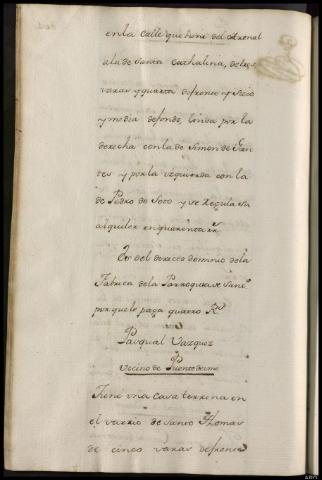 en la calle que viene del Arenal
ala de Santa Cathalina, de tres
varas y quarta de frente y Seis
y media de fondo, linda por la
derecha con la de Simon de
tes y por la izquierda con la
de Pedro de Soto y se Regula su
alquiler en quarenta rr.
Es del directo dominio dela
Fabrica dela Parroquia de
por que le paga quatro Rs
Pasqual Vazquez
Vecino de Puentedeume
Tiene una casa terrena en
el varrio de Santo Thomas
de cinco varas de frente